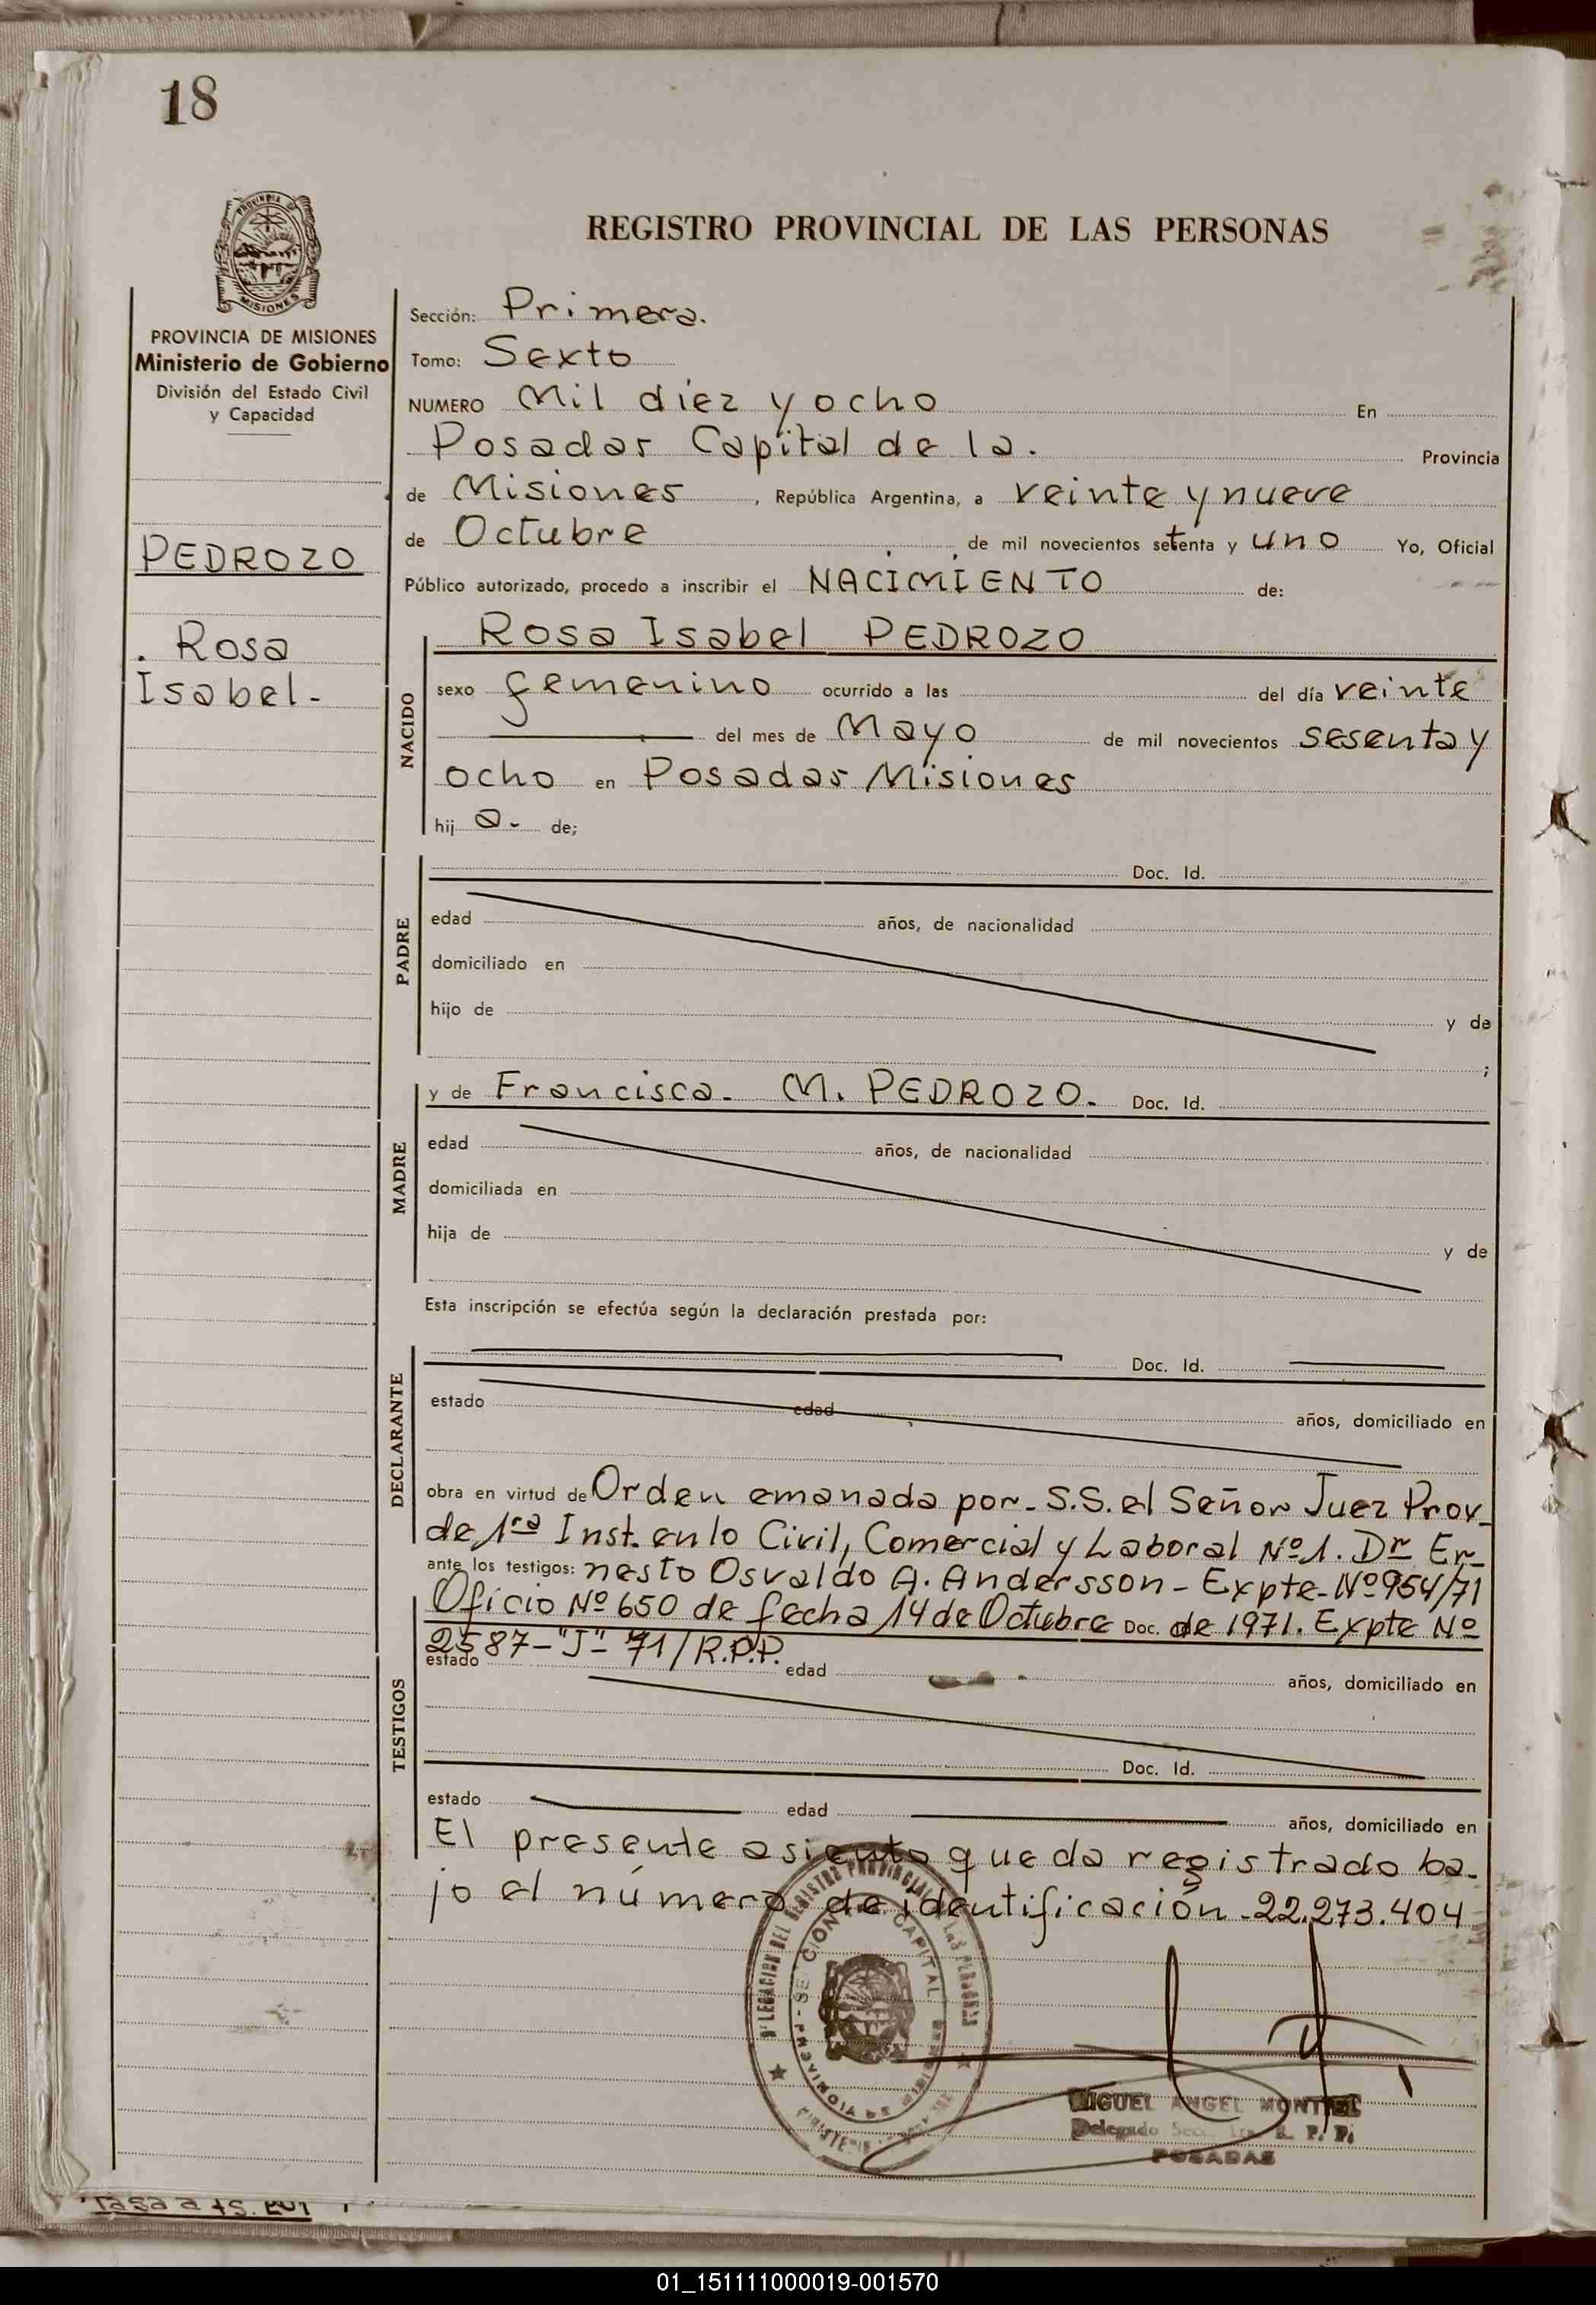 18
PROVINCIA DE MISIONES
REGISTRO PROVINCIAL DE LAS PERSONAS
PROVINCIA DE MISIONES
Ministerio de Gobierno
División del Estado Civil
y Capacidad
PEDROZO
. Rosa
Isabel-
Sección: Primera.
Tomo: Sexto
NUMERO Mil diez y ocho En
Posadas Capital de la. Provincia
de Misiones, República Argentina, a veinte y nueve
de Octubre de mil novecientos setenta y uno Yo, Oficial
Público autorizado, procedo a inscribir el NACIMIENTO de:
NACIDO
Rosa Isabel PEDROZO
sexo femenino ocurrido a las del día veinte
del mes de Mayo de mil novecientos sesenta y
ocho en Posadas Misiones
hij a. de;
PADRE
Doc. Id.
edad años, de nacionalidad
domiciliado en
hijo de y de
;
MADRE
y de Francisca. M. PEDROZO. Doc. Id.
edad años, de nacionalidad
domiciliada en
hija de y de
Esta inscripción se efectúa según la declaración prestada por:
DECLARANTE
Doc. Id.
estado edad años, domiciliado en
obra en virtud de Orden emanada por S.S. el Señor Juez Prov-
de 1ra Inst. en lo Civil, Comercial y Laboral Nº 1. Dr Er-
ante los testigos: nesto Osvaldo A. Andersson - Expte- Nº 954/71
TESTIGOS
Oficio Nº 650 de fecha 14 de Octubre Doc. de 1971. Expte Nº
2587-"J"- 71/R.P.P.
estado edad años, domiciliado en
Doc. Id.
estado edad años, domiciliado en
El presente asiento queda registrado ba-
jo el número de identificación -22.273.404
DELEGACION DEL REGISTRO PROVINCIAL DE LAS PERSONAS
SECCION CAPITAL
PROVINCIA DE MISIONES
MIGUEL ANGEL MONTIEL
Delegado Secc. 1ra R. P. P.
POSADAS
01_151111000019-001570